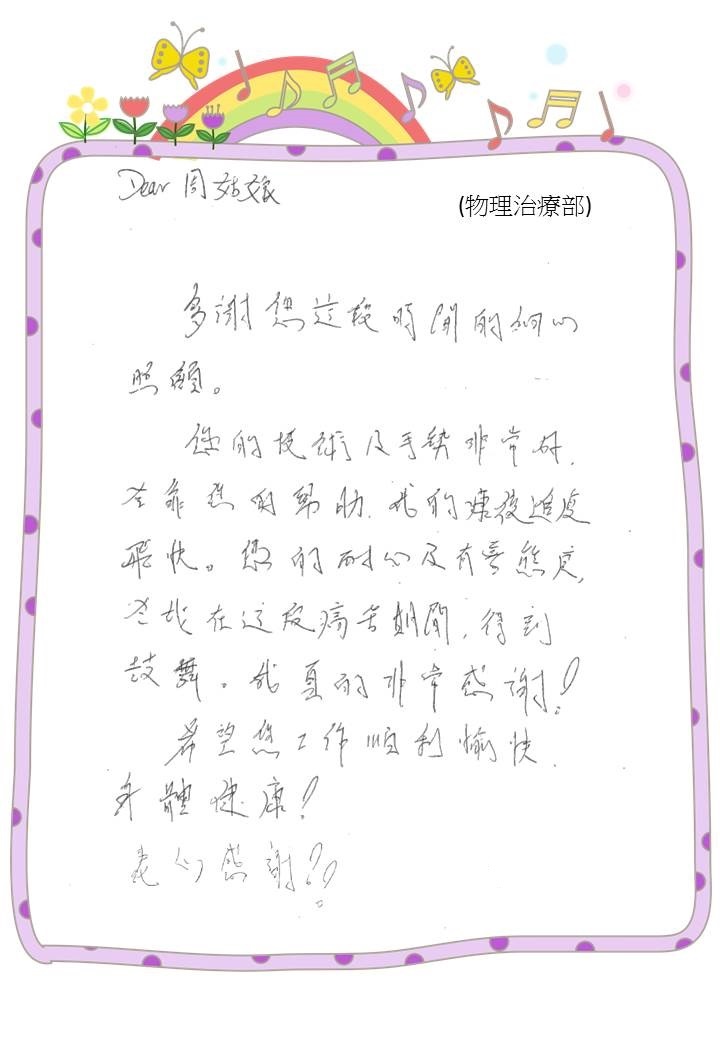 Dear 周姑娘
(物理治療部)
多謝您這段時間的細心
照顧。
您的技術及手勢非常好,
全靠您的幫助,我的康復進度
飛快。您的耐心及友善態度,
令我在這段痛苦期間,得到
鼓舞。我真的非常感謝!
希望您工作順利愉快,
身體健康!
衷心感謝!!